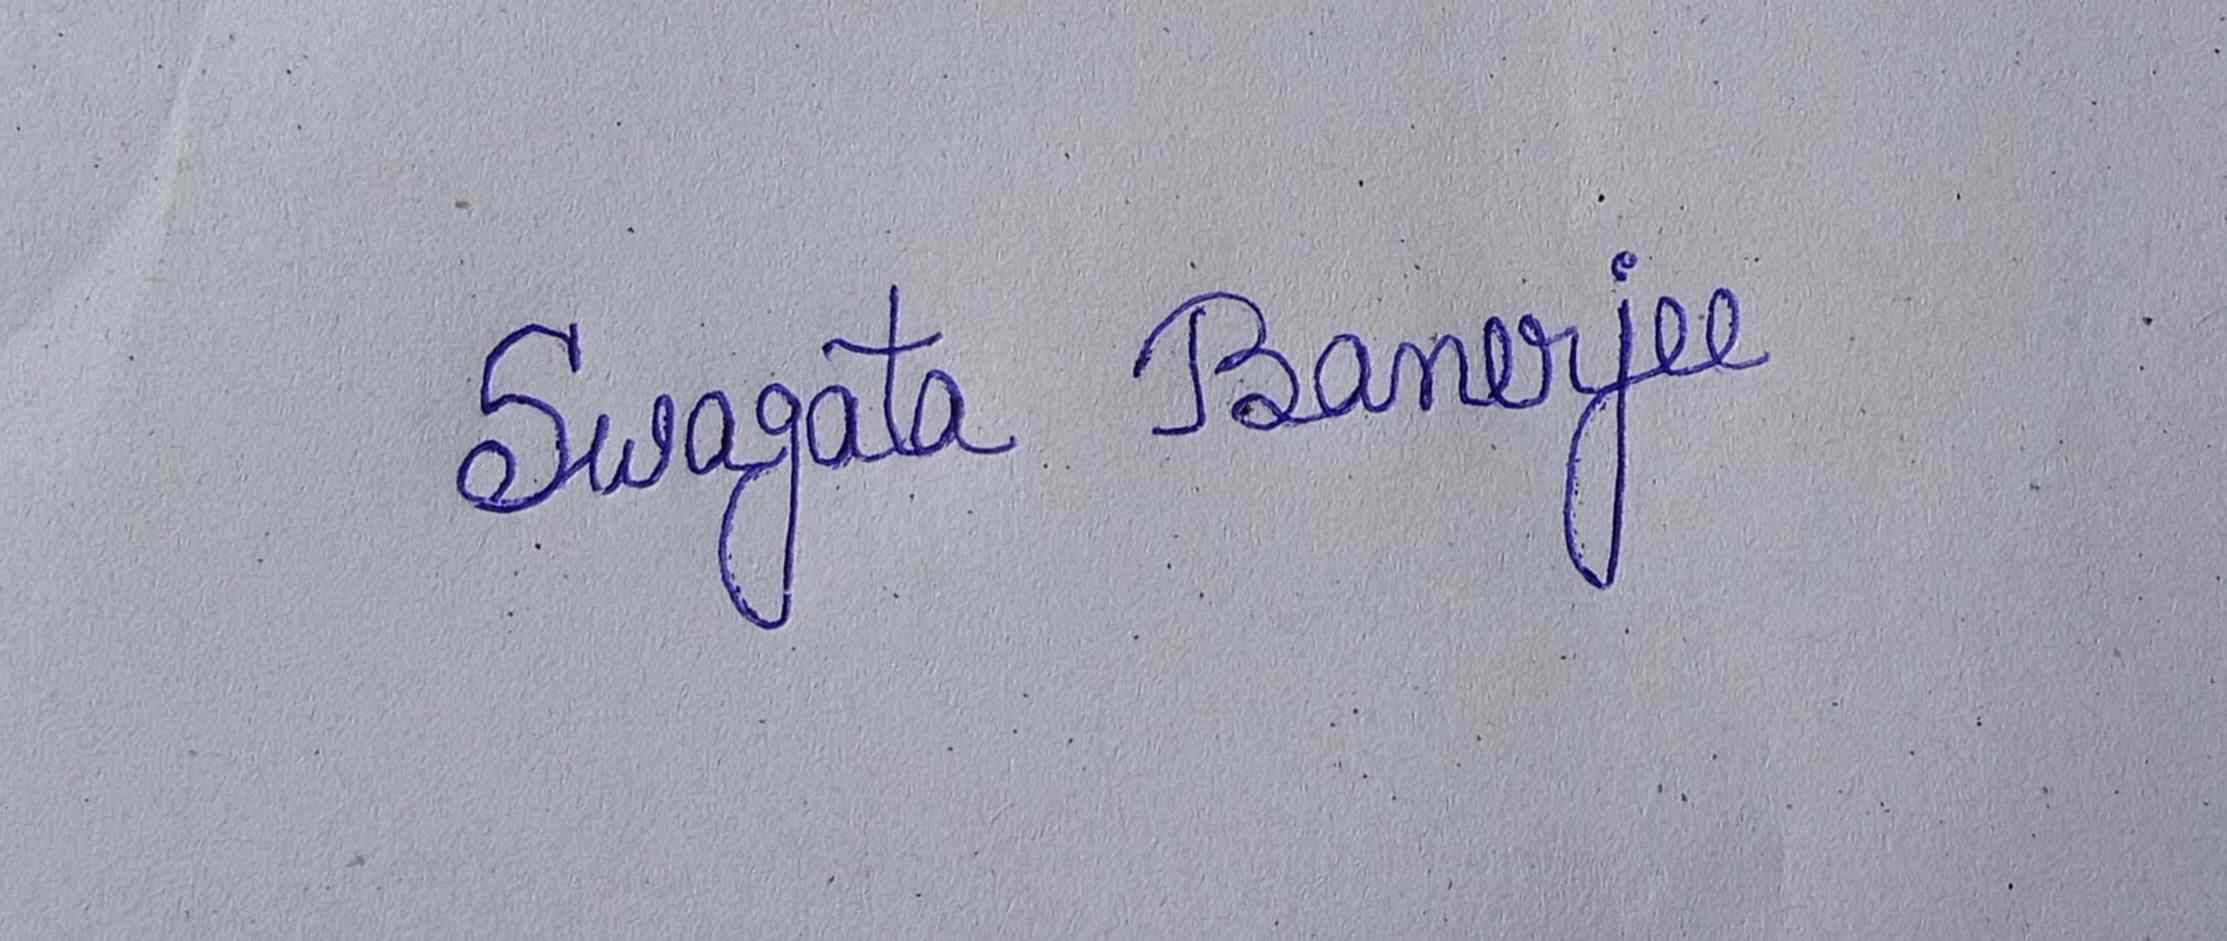 Swagata Banerjee